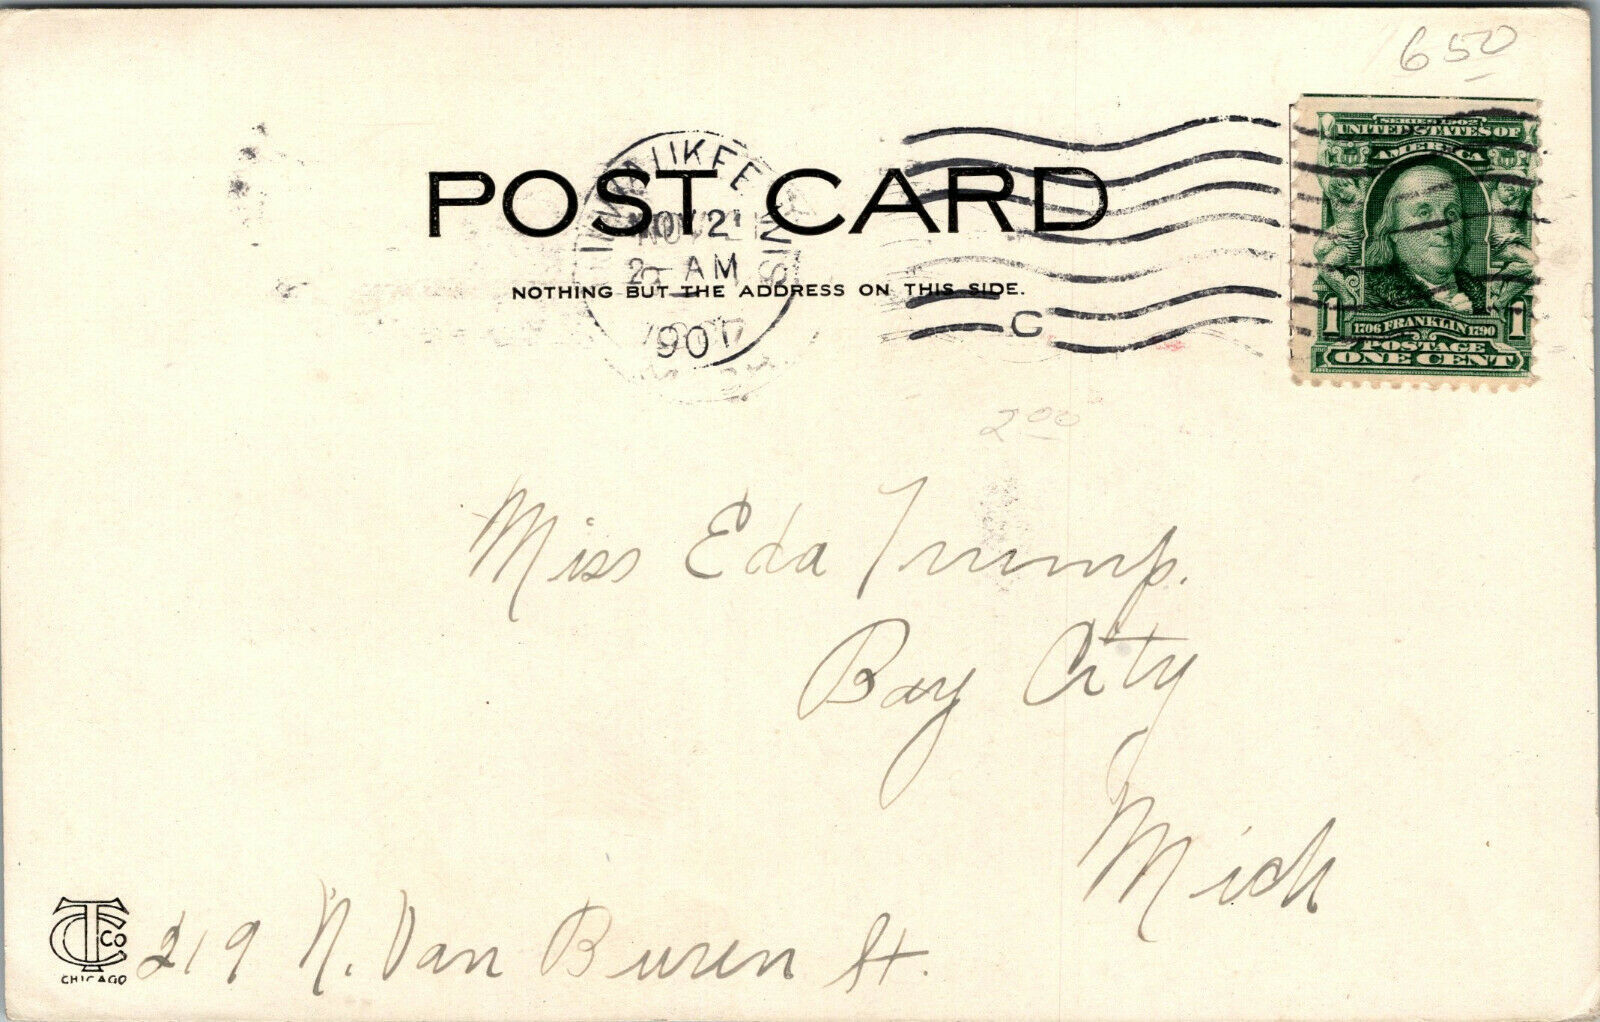 650
SERIES 1902
UNITED STATES OF
AMERICA
1 1706 FRANKLIN 1790 1
POSTAGE
ONE CENT
MILWAUKEE WIS
NOV 21
2- AM
190
C
POST CARD
NOTHING BUT THE ADDRESS ON THIS SIDE.
2 00
Miss Eda Trump.
Bay City
Mich
219 N. Van Buren St.
TC CO
CHICAGO